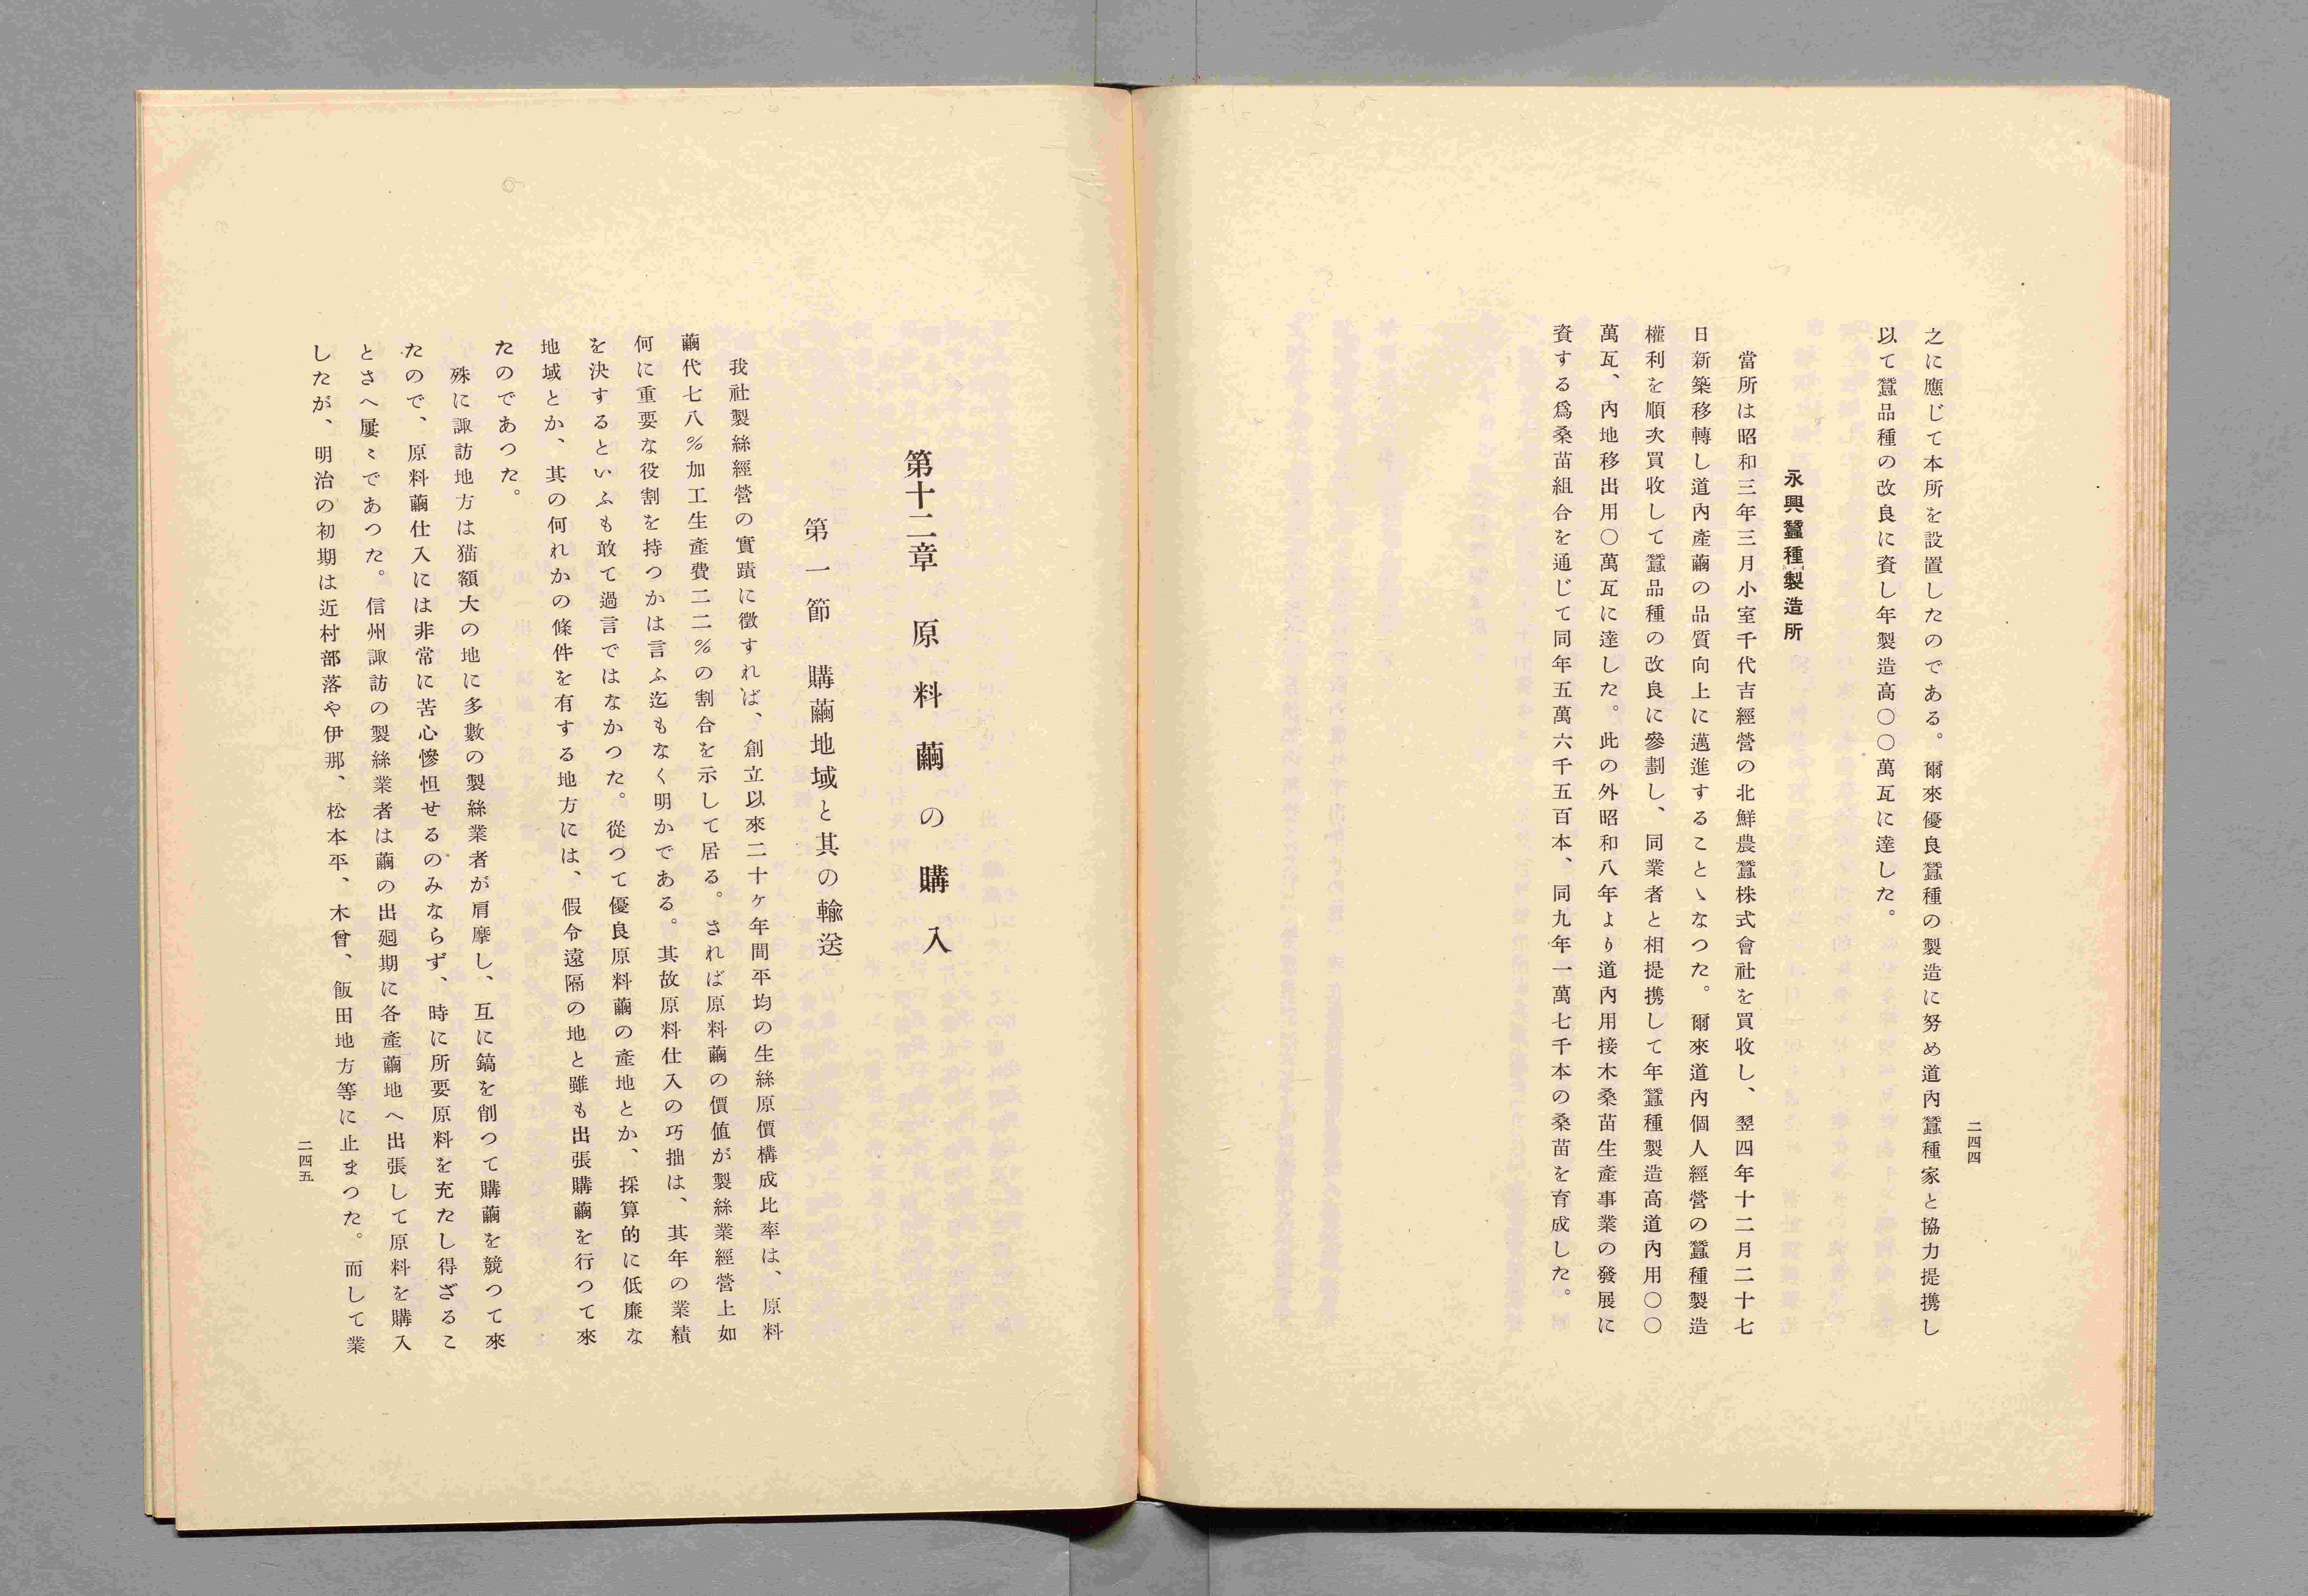 二四四
之に應じて本所を設置したのである。爾來優良蠶種の製造に努め道內蠶種家と協力提携し
以て蠶品種の改良に資し年製造高〇〇萬瓦に達した。
永興蠶種製造所
當所は昭和三年三月小室千代吉經營の北鮮農蠶株式會社を買收し、翌四年十二月二十七
日新築移轉し道內產繭の品質向上に邁進することゝなつた。爾來道內個人經營の蠶種製造
權利を順次買收して蠶品種の改良に參劃し、同業者と相提携して年蠶種製造高道內用〇〇
萬瓦、內地移出用〇萬瓦に達した。此の外昭和八年より道內用接木桑苗生產事業の發展に
資する爲桑苗組合を通じて同年五萬六千五百本、同九年一萬七千本の桑苗を育成した。
第十二章　原料繭の購入
第一節　購繭地域と其の輸送
我社製絲經營の實蹟に徵すれば、創立以來二十ヶ年間平均の生絲原價構成比率は、原料
繭代七八％加工生產費二二％の割合を示して居る。されば原料繭の價値が製絲業經營上如
何に重要な役割を持つかは言ふ迄もなく明かである。其故原料仕入の巧拙は、其年の業績
を決するといふも敢て過言ではなかつた。從つて優良原料繭の產地とか、採算的に低廉な
地域とか、其の何れかの條件を有する地方には、假令遠隔の地と雖も出張購繭を行つて來
たのであつた。
殊に諏訪地方は猫額大の地に多數の製絲業者が肩摩し、互に鎬を削つて購繭を競つて來
たので、原料繭仕入には非常に苦心慘怛せるのみならず、時に所要原料を充たし得ざるこ
とさへ屢〻であつた。信州諏訪の製絲業者は繭の出廻期に各產繭地へ出張して原料を購入
したが、明治の初期は近村部落や伊那、松本平、木曾、飯田地方等に止まつた。而して業
二四五